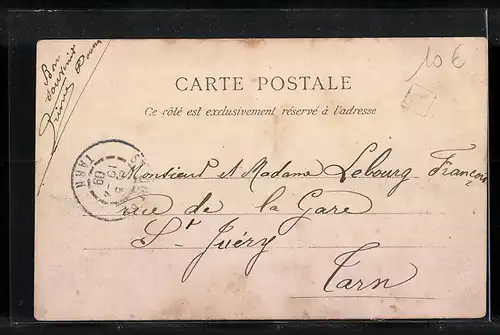 Bon
souvenir
10 €
CARTE POSTALE
Ce côté est exclusivement réservé à l'adresse
TARN
Monsieur et Madame Lebourg François
rue de la Gare
St Juéry
Tarn